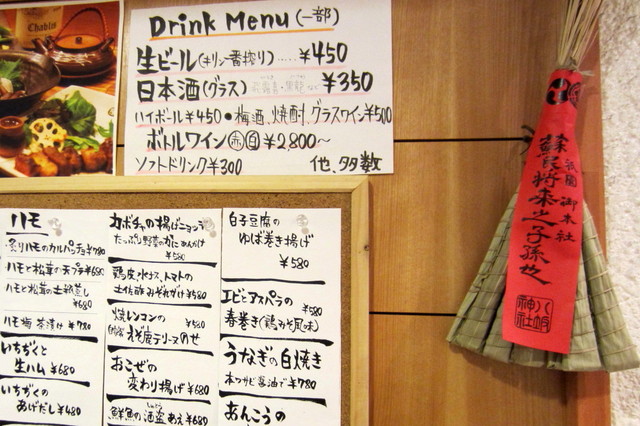 Chablis
Drink Menu (一部)
生ビール(キリン一番搾り)‥‥ ¥450
日本酒(グラス) ¥350
ハイボール¥450 ● 梅酒、焼酎、グラスワイン¥500
ボトルワイン(赤)(白)¥2,800〜
ソフトドリンク¥300 他、多数
ハモ
炙りハモのカルパッチョ¥780
ハモと松茸の天プラ¥680
ハモと松茸の土瓶蒸し
¥680
ハモ梅茶漬け ¥780
いちぢくと
生ハム ¥680
いちぢくの
あげだし ¥480
カボチャの揚げニョッキ
たっぷり野菜のカニあんかけ
¥580
鶏皮、水ナス、トマトの
土佐酢みぞれがけ¥580
焼レンコンの
テリーヌのせ
おこぜの
変わり揚げ ¥680
鮮魚の酒盗あえ ¥680
白子豆腐の
ゆば巻き揚げ
¥580
エビとアスパラの ¥580
春巻き(鶏みそ風味)
うなぎの白焼き
本ワサビ醤油で ¥780
あんこうの
祇園御本社
蘇民将来之子孫也
八坂神社